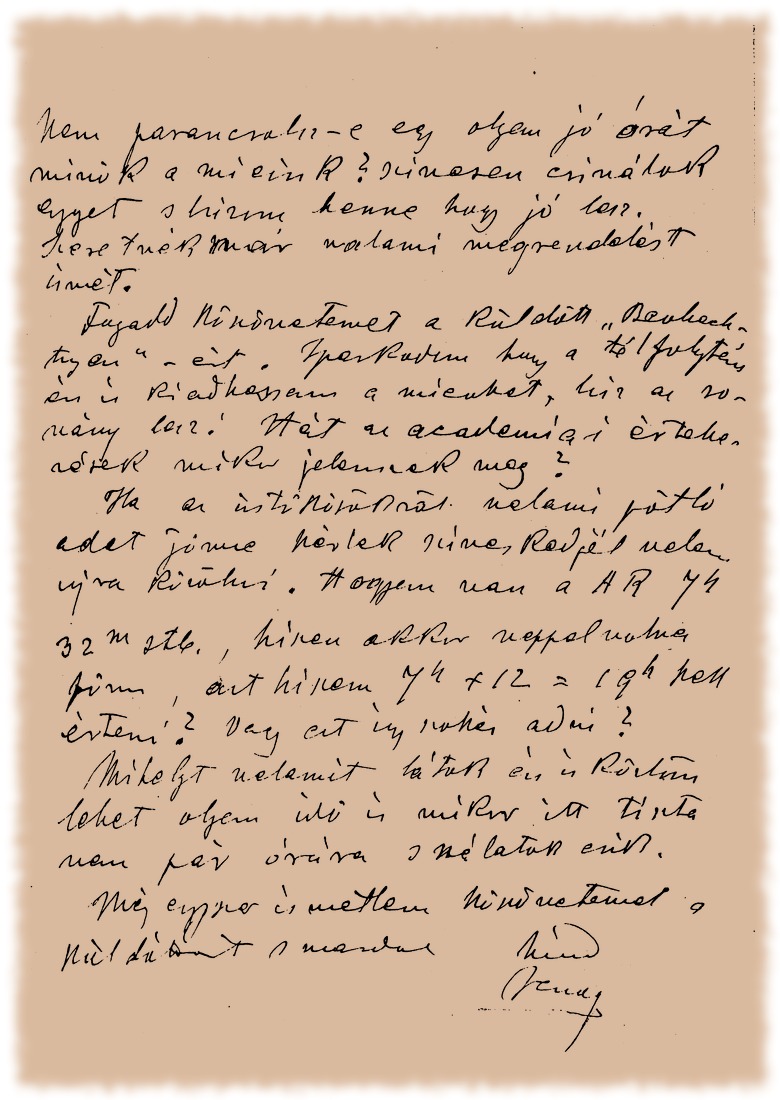 Nem parancsolsz-e egy olyan jó órát
minők a mieink? szívesen csinálok
egyet s hiszem benne hogy jó lesz.
Szeretnék már valami megrendelést
ismét.
Fogadd köszönetemet a küldött „Beobach-
tungen"-ért. Iparkodom hogy a tél folytán
én is kiadhassam a miénket, bár az so-
vány lesz! Hát az academiai érteke-
zések mikor jelennek meg?
Ha az üstökösökről valami pótló
adat jönne kérlek szíveskedjél velem
újra közölni. Hogyan van a AR 7h
32m stb., hiszen akkor nappal volna
fönn, azt hiszem 7h + 12 = 19h kell
érteni? Vagy ezt így szokás adni?
Mihelyt valamit látok én is közlöm
lehet olyan idő is mikor itt tiszta
van pár órára s nálatok esik.
Még egyszer ismétlem köszönetemet a
küldöttért s maradok
híved
Jenay